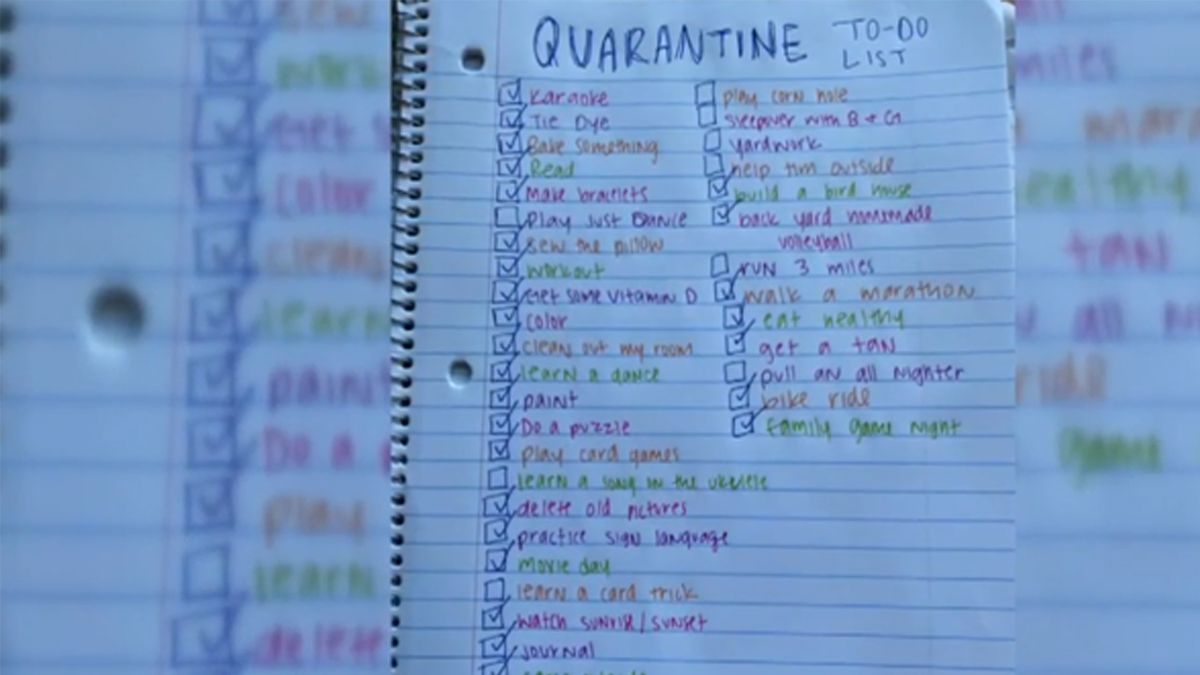 QUARANTINE TO-DO
LIST
Karaoke
Tie Dye
Bake something
Read
Make bracelets
Play Just Dance
sew the pillow
workout
Get some vitamin D
color
clean out my room
learn a dance
paint
Do a puzzle
play card games
learn a song on the ukelele
delete old pictures
practice sign language
movie day
learn a card trick
watch sunrise/sunset
journal
play corn hole
sleepover with B + G
yardwork
help tim outside
build a bird house
back yard homemade
volleyball
run 3 miles
walk a marathon
eat healthy
get a tan
pull an all nighter
bike ride
family game night